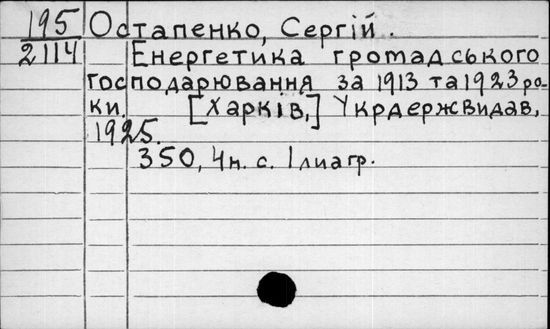 195 Остапенко, Сергій.
2114 Енергетика громадського
господарювання за 1913 та 1923 ро-
ки. [Харків,] Укрдержвидав,
1925.
350, 4н. с. 1 лиагр.